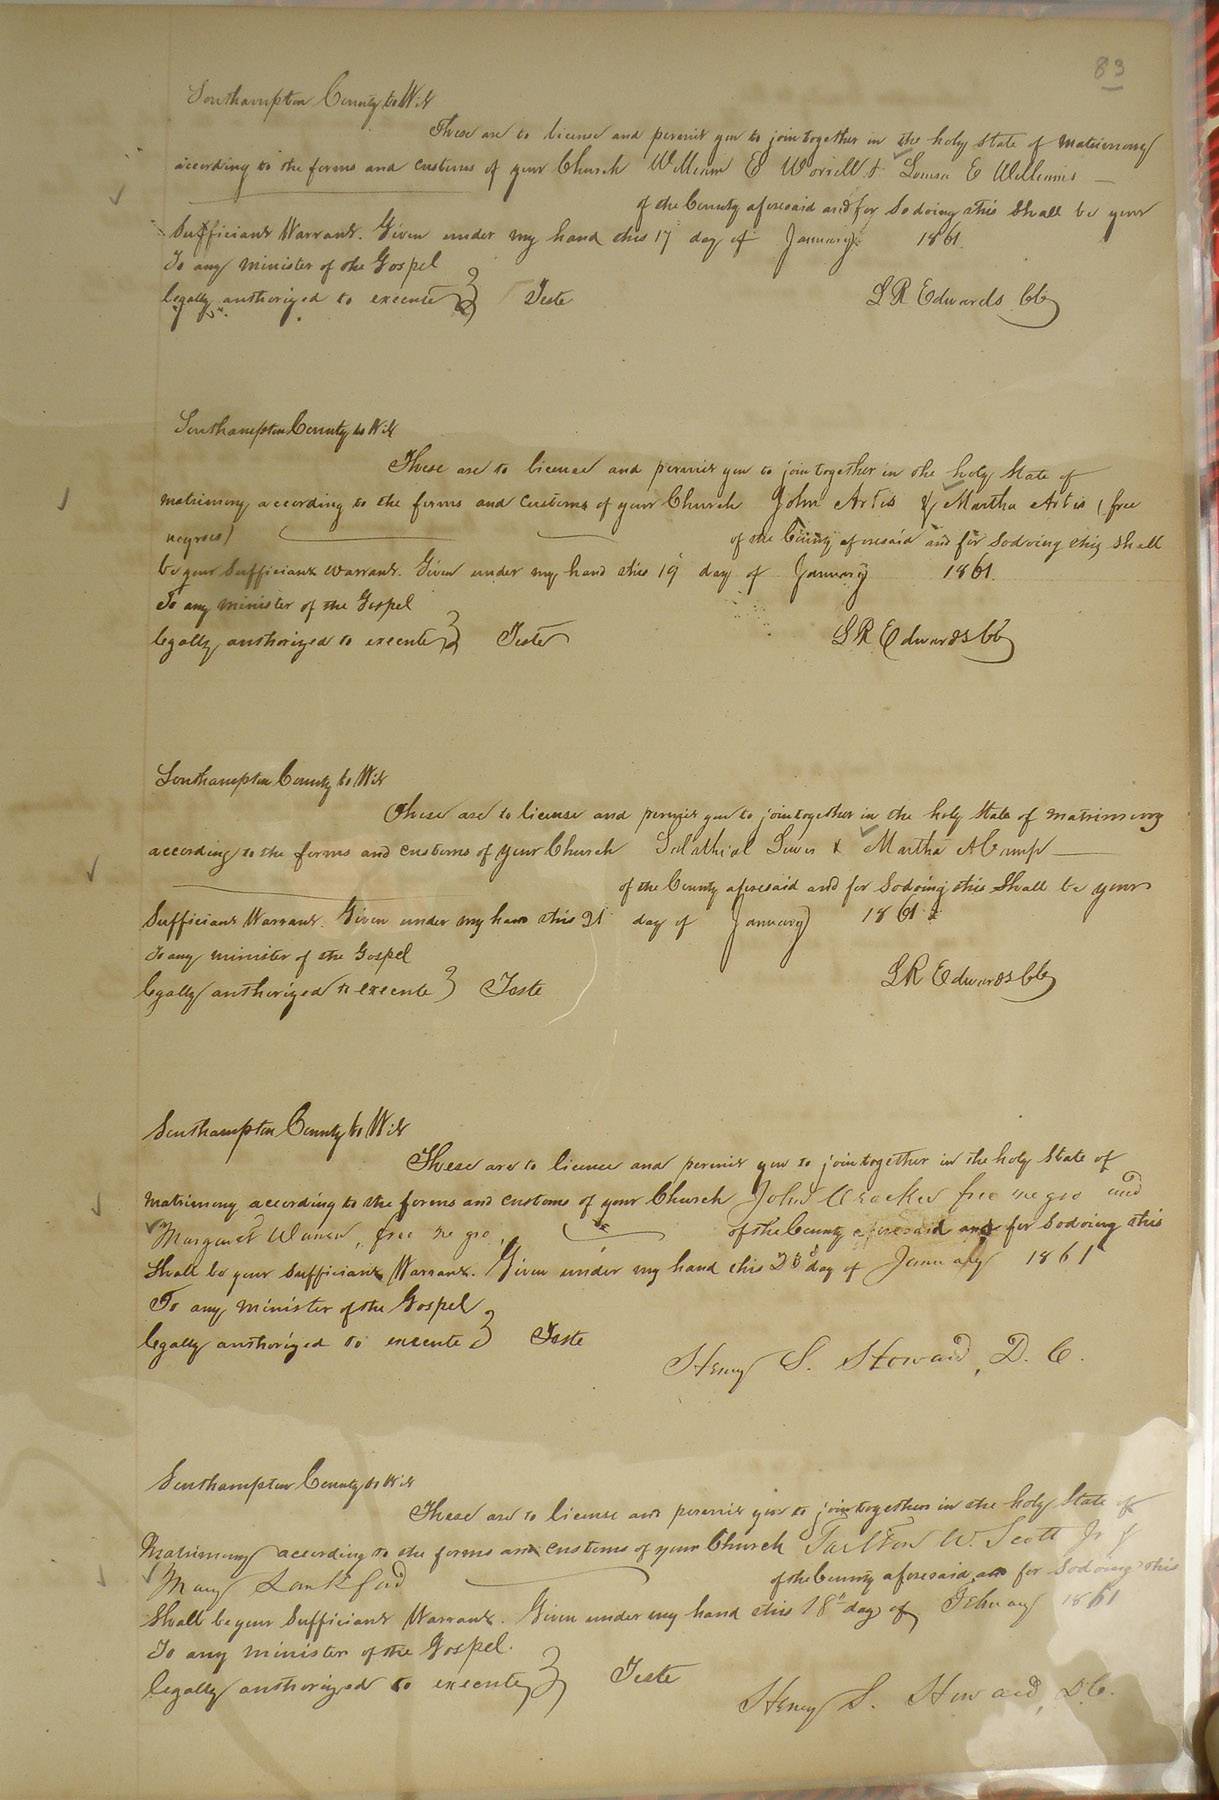 83
Southampton County to Wit
These are to license and permit you to join together in the holy state of matrimony
according to the forms and customs of your Church William E Worrell & Louisa E Williams
of the County aforesaid and for so doing this shall be your
sufficient Warrant. Given under my hand this 17 day of January 1861.
To any minister of the Gospel
legally authorized to execute } Teste L R Edwards CC
Southampton County to Wit
These are to license and permit you to join together in the holy state of
matrimony according to the forms and customs of your Church John Artis & Martha Artis (free
negroes) of the County aforesaid and for so doing this shall
be your sufficient warrant. Given under my hand this 19 day of January 1861.
To any minister of the Gospel
legally authorized to execute } Teste L R Edwards CC
Southampton County to Wit
These are to license and permit you to join together in the holy state of matrimony
according to the forms and customs of your Church & Martha A
of the County aforesaid and for so doing this shall be your
sufficient Warrant. Given under my hand this 21 day of January 1861
To any minister of the Gospel
legally authorized to execute } Teste L R Edwards CC
Southampton County to Wit
These are to licence and permit you to join together in the holy state of
matrimony according to the forms and customs of your Church John free negro and
Margaret free negro, of the County aforesaid and for so doing this
shall be your sufficient Warrant. Given under my hand this day of January 1861
To any minister of the Gospel
legally authorized to execute } Teste
Henry S. Howard, D. C.
Southampton County to Wit
These are to license and permit you to join together in the holy state of
Matrimony according to the forms and customs of your Church Tarlton W. Scott Jr &
Mary Lankford of the County aforesaid and for so doing this
shall be your sufficient Warrant. Given under my hand this 18th day of February 1861
To any minister of the Gospel.
legally authorized to execute } Teste
Henry S. Howard, D.C.